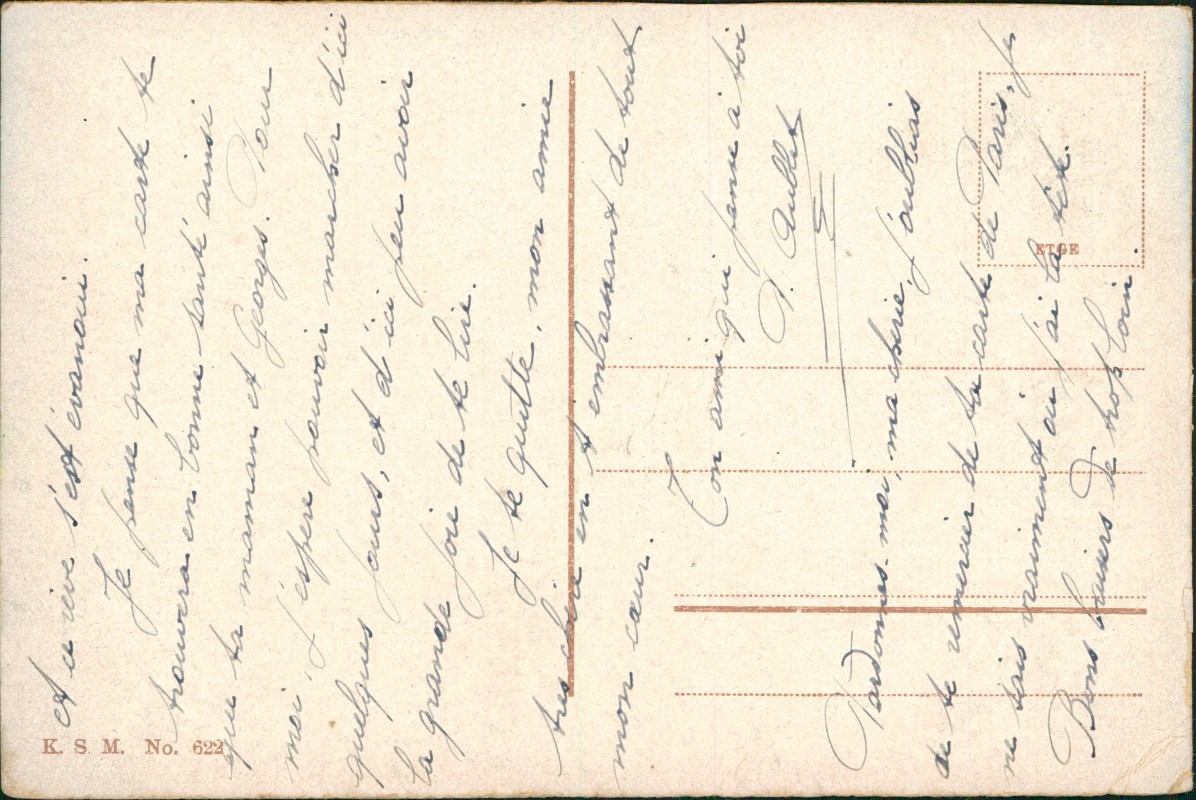 et ce rêve s'est évanoui.
Je pense que ma carte te
trouvera en bonne santé ainsi
que ta maman et Georges. Pour
moi j'espère pouvoir marcher d'ici
quelques jours, et d'ici peu avoir
la grande joie de te lire.
Je te quitte, mon amie
très chère en t'embrassant de tout
mon cœur.
Ton ami qui pense à toi
Pardonnes-moi, ma chérie, j'oubliais
de te remercier de ta carte de Paris, je
ne sais vraiment où j'ai la tête.
Bons baisers de trop loin.
K. S. M. No. 622